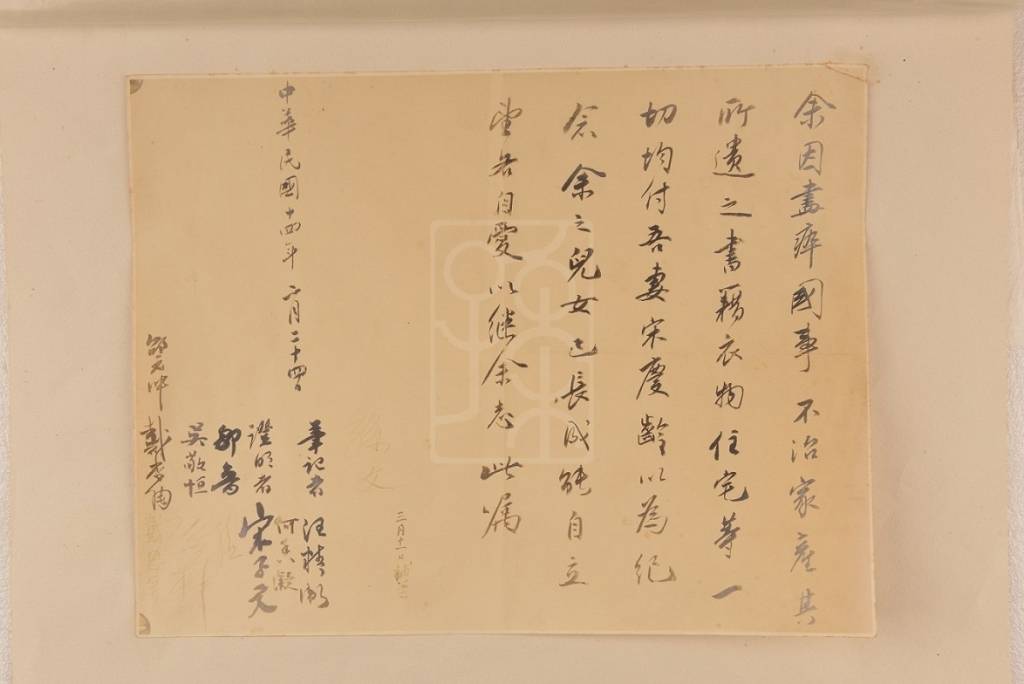 余因盡瘁國事不治家產其
所遺之書籍衣物住宅等一
切均付吾妻宋慶齡以為紀
念余之兒女已長成能自立
望各自愛以繼余志此属
孫文
三月十一日補簽
中華民國十四年二月二十四日
筆記者 汪精衛
何香凝
證明者 宋子文
邹魯
吳敬恒
邵元冲
戴季陶